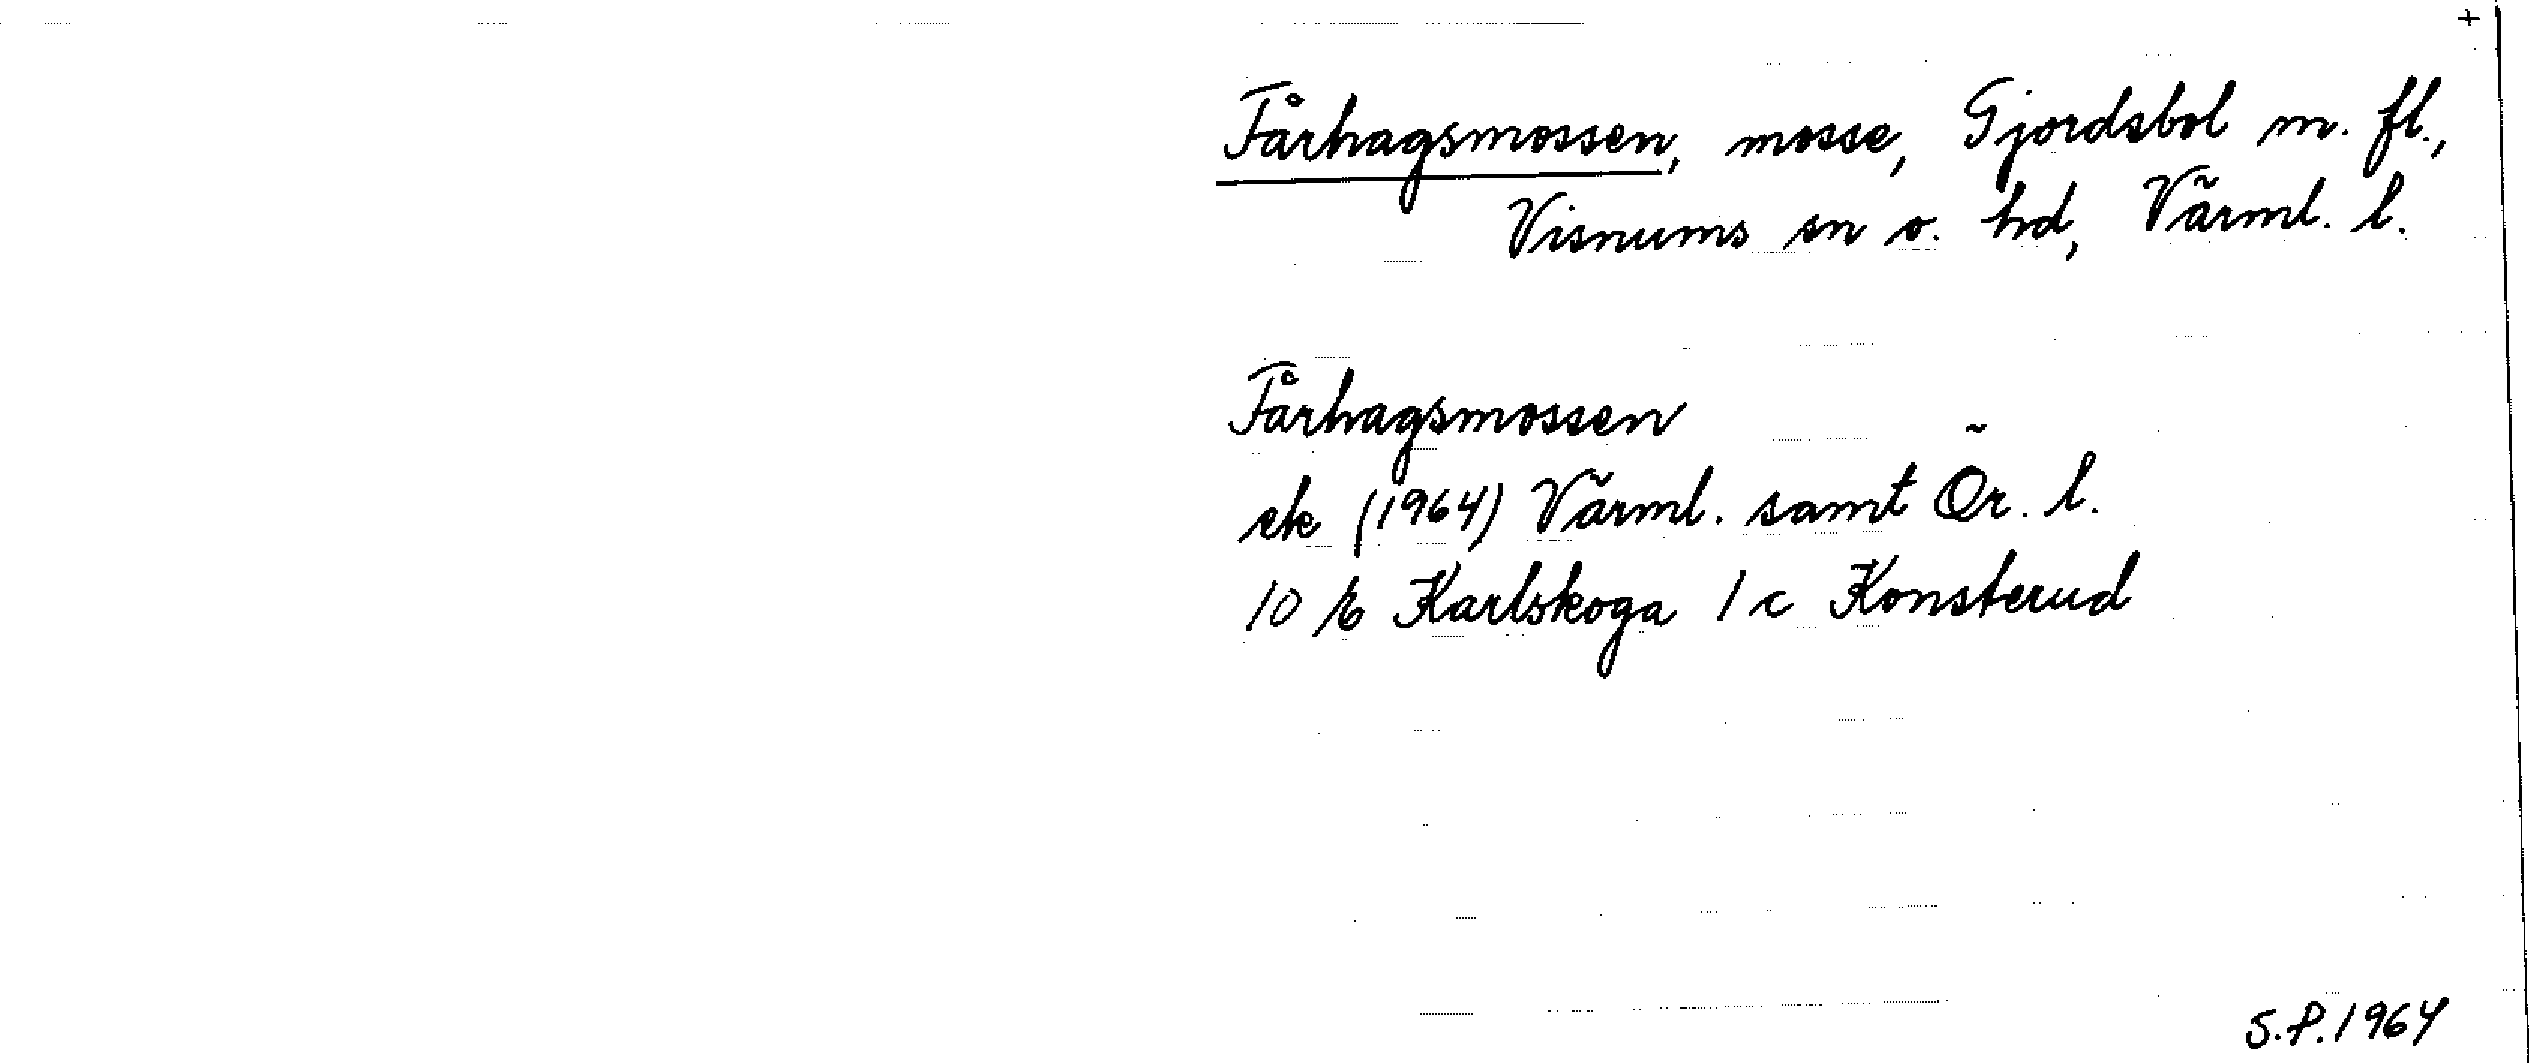 +
Fårhagsmossen, mosse, Gjordsbol m. fl.,
Visnums sn o. hd, Värml. l.
Fårhagsmossen
ek (1964) Värml. samt Ör. l.
10 E Karlskoga 1 c Konsterud
S.P. 1964